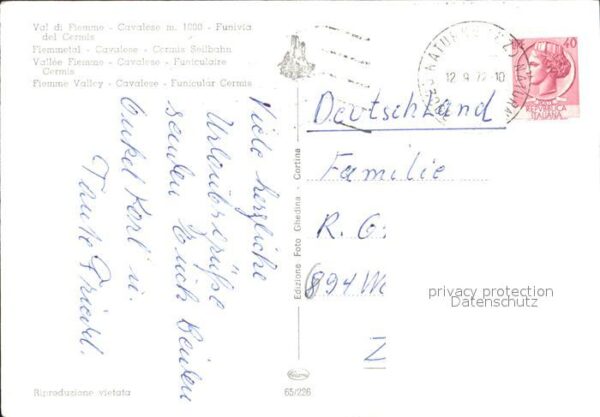 Val di Fiemme - Cavalese m. 1000 - Funivia
del Cermis
Fiemmetal - Cavalese - Cermis Seilbahn
Vallée Fiemme - Cavalese - Funiculaire
Cermis
Fiemme Valley - Cavalese - Funicular Cermis
Viele herzliche
Urlaubsgrüße
senden Euch beiden
Onkel Karl u.
Tante Friedl.
Riproduzione vietata
Edizione Foto Ghedina - Cortina
65/226
12.9.72.10
40
REPUBBLICA
ITALIANA
Deutschland
Familie
R. G.
privacy protection
Datenschutz